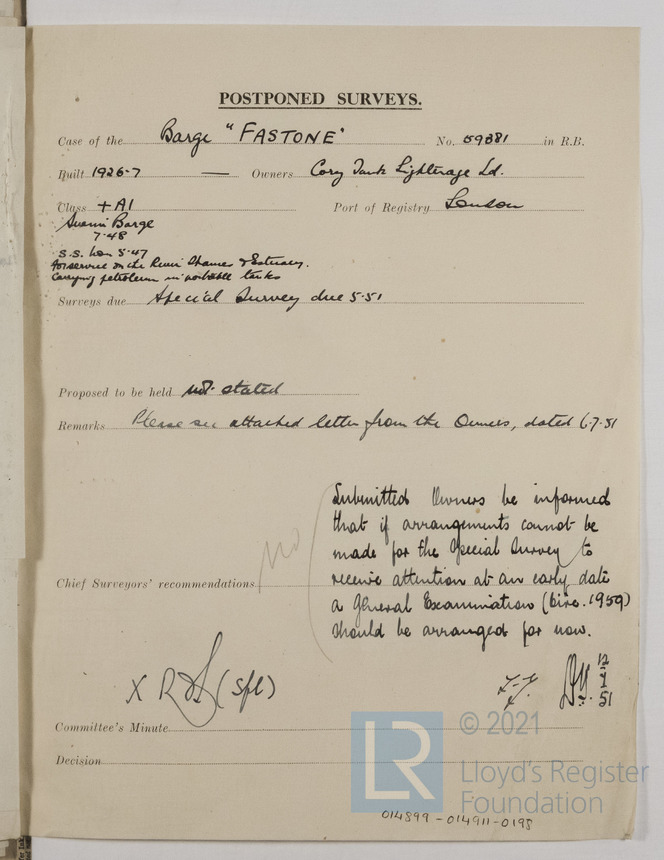 POSTPONED SURVEYS.
Case of the Barge "FASTONE" No. 59881 in R.B.
Built 1926-7 — Owners Cory Tank Lighterage Ld.
Class + A1 Port of Registry London
Swim Barge
7-48
S.S. Lon 5-47
for service on the River Thames & Estuary.
Carrying petroleum in portable tanks
Surveys due Special Survey due 5-51
Proposed to be held not stated
Remarks Please see attached letter from the Owners, dated 6-7-51
Submitted Owners be informed
that if arrangements cannot be
made for the Special Survey to
receive attention at an early date
a General Examination (Circ. 1959)
should be arranged for now.
Chief Surveyors' recommendations
no
X (Spl)
12
7
51
Committee's Minute
Decision
LR © 2021
Lloyd's Register
Foundation
014899-014911-0198